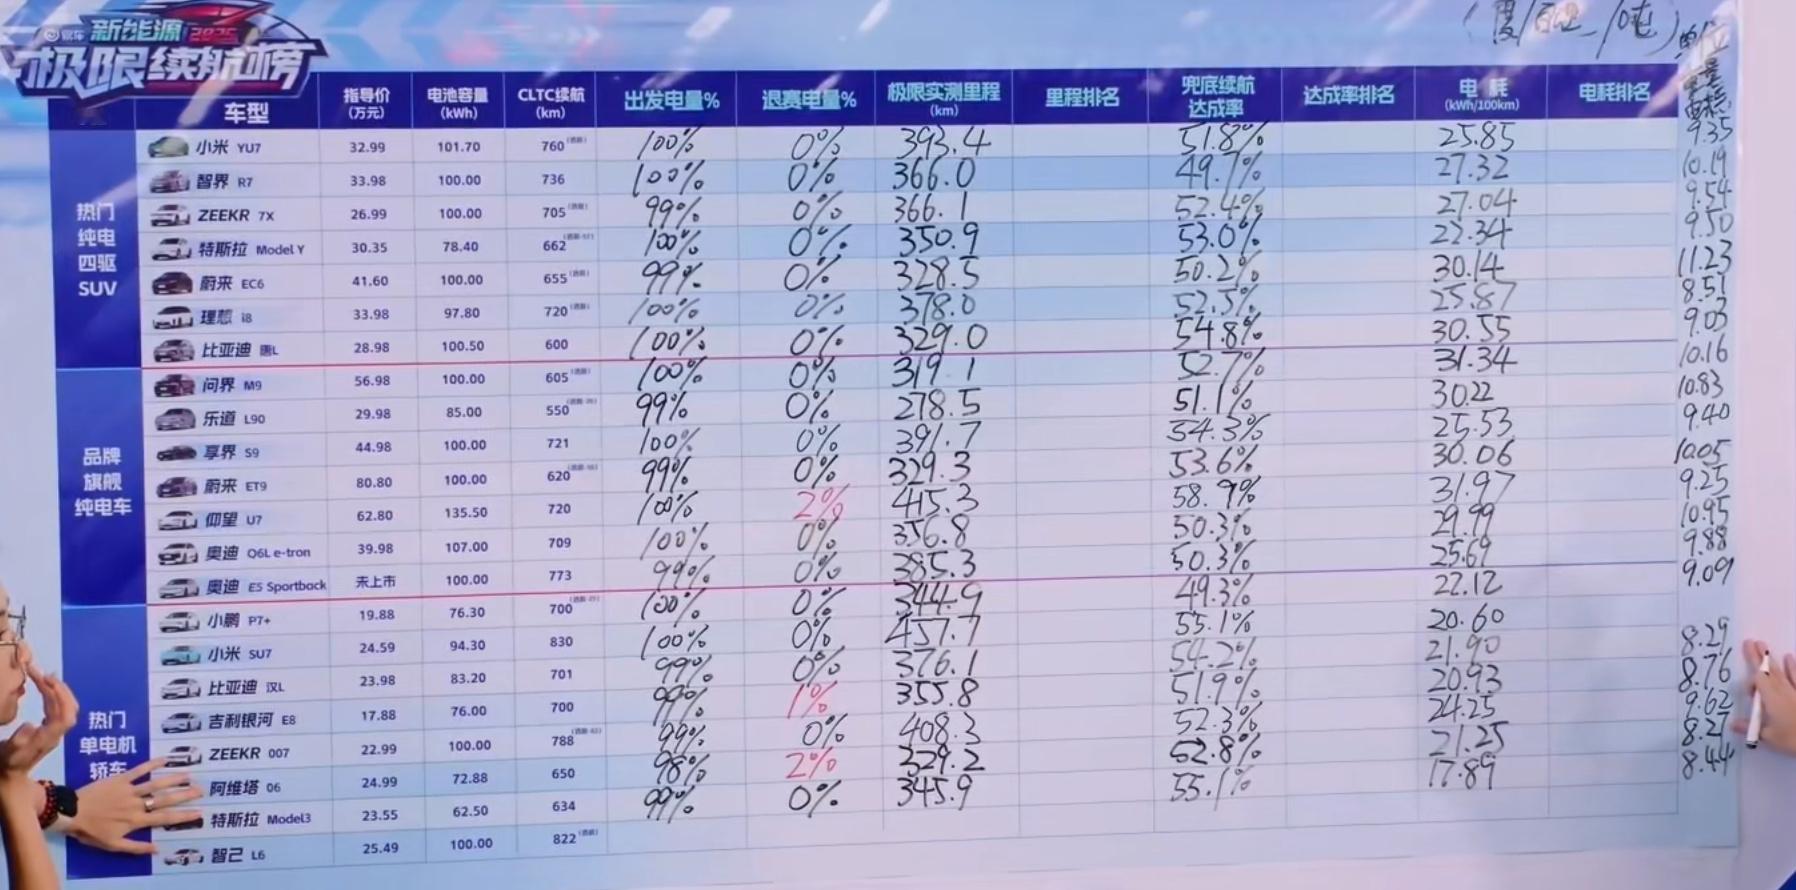 易车 新能源 2025
极限续航榜
(度/百公里/吨) 单位
车型 指导价(万元) 电池容量(kWh) CLTC续航(km) 出发电量% 退赛电量% 极限实测里程(km) 里程排名 兜底续航达成率 达成率排名 电耗(kWh/100km) 电耗排名
热门纯电四驱SUV
小米 YU7 32.99 101.70 760 100% 0% 393.4 51.8% 25.85 9.35
智界 R7 33.98 100.00 736 100% 0% 366.0 49.7% 27.32 10.19
ZEEKR 7X 26.99 100.00 705 99% 0% 366.1 52.4% 27.04 9.54
特斯拉 Model Y 30.35 78.40 662 100% 0% 350.9 53.0% 22.34 9.50
蔚来 EC6 41.60 100.00 655 99% 0% 328.5 50.2% 30.14 11.23
理想 i8 33.98 97.80 720 100% 0% 378.0 52.5% 25.87 8.51
比亚迪 唐L 28.98 100.50 600 100% 0% 329.0 54.8% 30.55 9.03
品牌旗舰纯电车
问界 M9 56.98 100.00 605 100% 0% 319.1 52.7% 31.34 10.16
乐道 L90 29.98 85.00 550 99% 0% 278.5 51.1% 30.22 10.83
享界 S9 44.98 100.00 721 100% 0% 391.7 54.3% 25.53 9.40
蔚来 ET9 80.80 100.00 620 99% 0% 329.3 53.6% 30.06 10.05
仰望 U7 62.80 135.50 720 100% 2% 415.3 58.9% 31.97 9.25
奥迪 Q6L e-tron 39.98 107.00 709 100% 0% 356.8 50.3% 29.99 10.95
奥迪 E5 Sportback 未上市 100.00 773 99% 0% 385.3 50.3% 25.69 9.88
热门单电机轿车
小鹏 P7+ 19.88 76.30 700 100% 0% 344.9 49.3% 22.12 9.09
小米 SU7 24.59 94.30 830 100% 0% 457.7 55.1% 20.60
比亚迪 汉L 23.98 83.20 701 99% 0% 376.1 54.2% 21.90 8.29
吉利银河 E8 17.88 76.00 700 99% 1% 355.8 51.9% 20.93 8.76
ZEEKR 007 22.99 100.00 788 99% 0% 408.3 52.3% 24.25 9.62
阿维塔 06 24.99 72.88 650 98% 2% 329.2 52.8% 21.25 8.27
特斯拉 Model3 23.55 62.50 634 99% 0% 345.9 55.1% 17.89 8.44
智己 L6 25.49 100.00 822